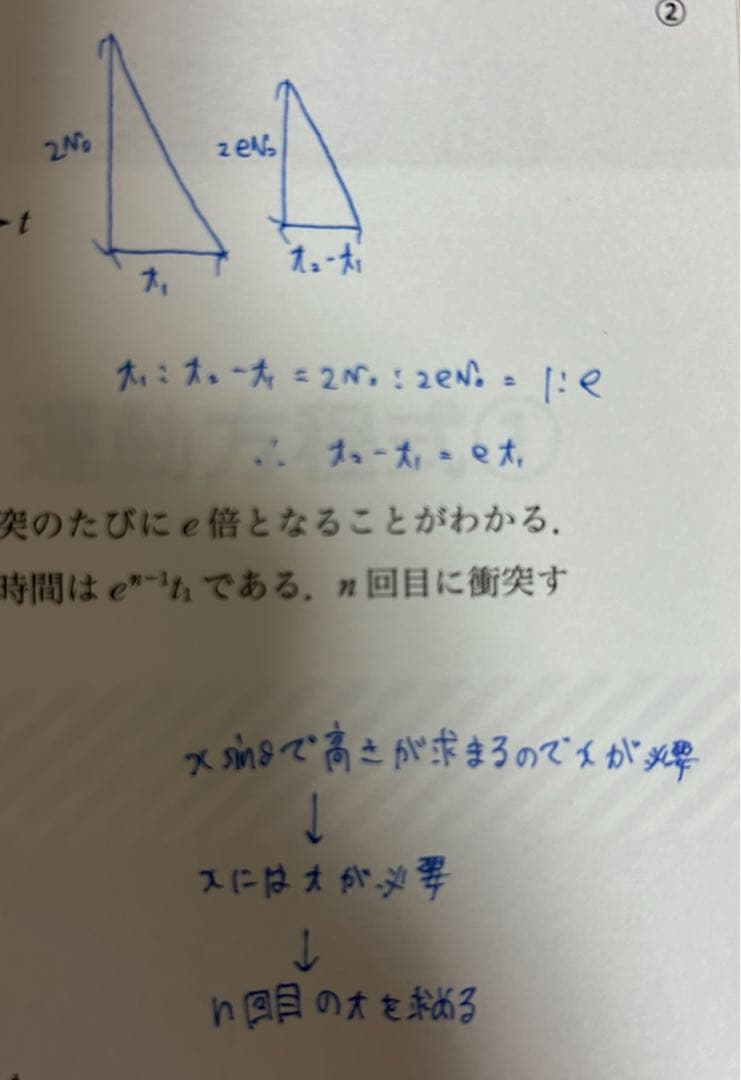 ②
2v₀
2ev₀
t
t₁
t₂-t₁
t₁:t₂-t₁=2v₀:2ev₀=1:e
∴ t₂-t₁=et₁
突のたびにe倍となることがわかる.
時間はeⁿ⁻¹t₁である. n回目に衝突す
x sinθで高さが求まるのでxが必要
↓
xにはtが必要
↓
n回目のtを求める